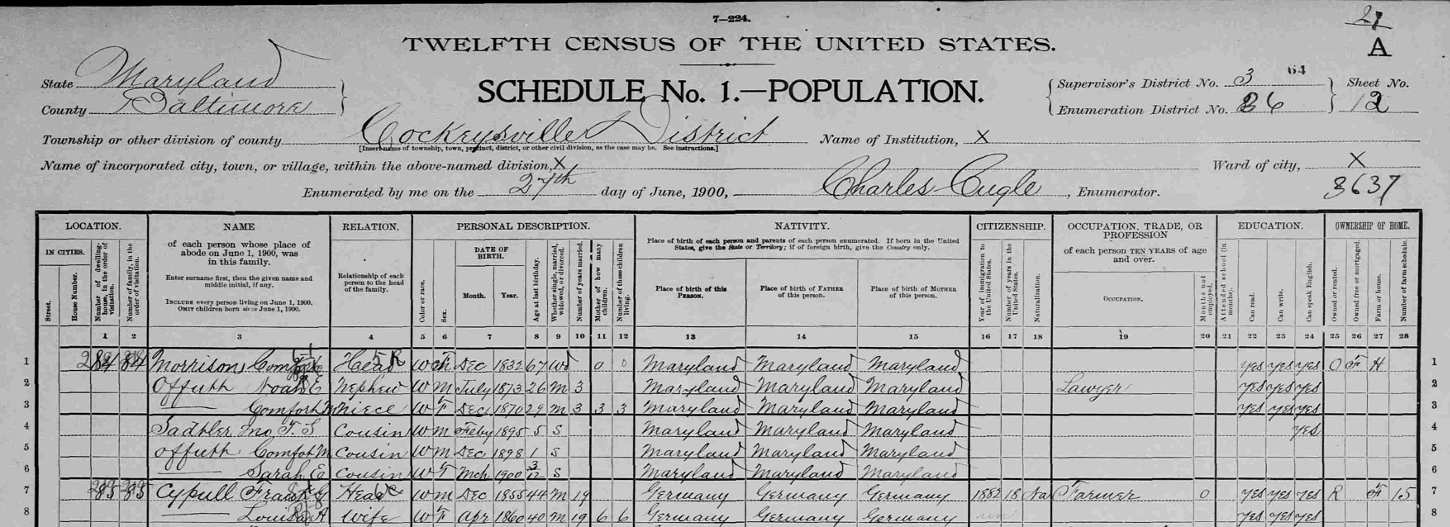 7—224.
27
A
TWELFTH CENSUS OF THE UNITED STATES.
State Maryland
County Baltimore
SCHEDULE No. 1.—POPULATION.
Supervisor's District No. 3 64
Enumeration District No. 26
Sheet No.
12
Township or other division of county Cockeysville District Name of Institution, X
[Insert name of township, town, precinct, district, or other civil division, as the case may be. See instructions.]
Name of incorporated city, town, or village, within the above-named division, X Ward of city, X
Enumerated by me on the 27th day of June, 1900, Charles Cugle, Enumerator. 3637
LOCATION. NAME RELATION. PERSONAL DESCRIPTION. NATIVITY. CITIZENSHIP. OCCUPATION, TRADE, OR PROFESSION EDUCATION. OWNERSHIP OF HOME.
IN CITIES.
Street.
House Number.
Number of dwelling-house, in the order of visitation.
Number of family, in the order of visitation.
of each person whose place of abode on June 1, 1900, was in this family.
Enter surname first, then the given name and middle initial, if any.
INCLUDE every person living on June 1, 1900.
OMIT children born since June 1, 1900.
Relationship of each person to the head of the family.
Color or race.
Sex.
DATE OF BIRTH.
Month. Year.
Age at last birthday.
Whether single, married, widowed, or divorced.
Number of years married.
Mother of how many children.
Number of these children living.
Place of birth of each person and parents of each person enumerated. If born in the United States, give the State or Territory; if of foreign birth, give the Country only.
Place of birth of this PERSON.
Place of birth of FATHER of this person.
Place of birth of MOTHER of this person.
Year of immigration to the United States.
Number of years in the United States.
Naturalization.
of each person TEN YEARS of age and over.
OCCUPATION.
Months not employed.
Attended school (in months).
Can read.
Can write.
Can speak English.
Owned or rented.
Owned free or mortgaged.
Farm or house.
Number of farm schedule.
1 2 3 4 5 6 7 8 9 10 11 12 13 14 15 16 17 18 19 20 21 22 23 24 25 26 27 28
1 284 284 Morrison Comfort Head W F Dec 1832 67 Wd 0 0 Maryland Maryland Maryland yes yes yes O F H 1
2 Offutth Noah E Nephew W M July 1873 26 M 3 Maryland Maryland Maryland Lawyer yes yes yes 2
3 —— Comfort M Niece W F Dec 1870 29 M 3 3 3 Maryland Maryland Maryland yes yes yes 3
4 Sadtler Jno T. S Cousin W M Feby 1895 5 S Maryland Maryland Maryland yes 4
5 Offutth Comfort M Cousin W M Dec 1898 1 S Maryland Maryland Maryland 5
6 —— Sarah E Cousin W F Mch 1900 3/12 S Maryland Maryland Maryland 6
7 285 285 Cypull Frank G Head W M Dec 1855 44 M 19 Germany Germany Germany 1882 18 Na Farmer 0 yes yes yes R F 15 7
8 —— Louisa A Wife W F Apr 1860 40 M 19 6 6 Germany Germany Germany yes yes yes 8